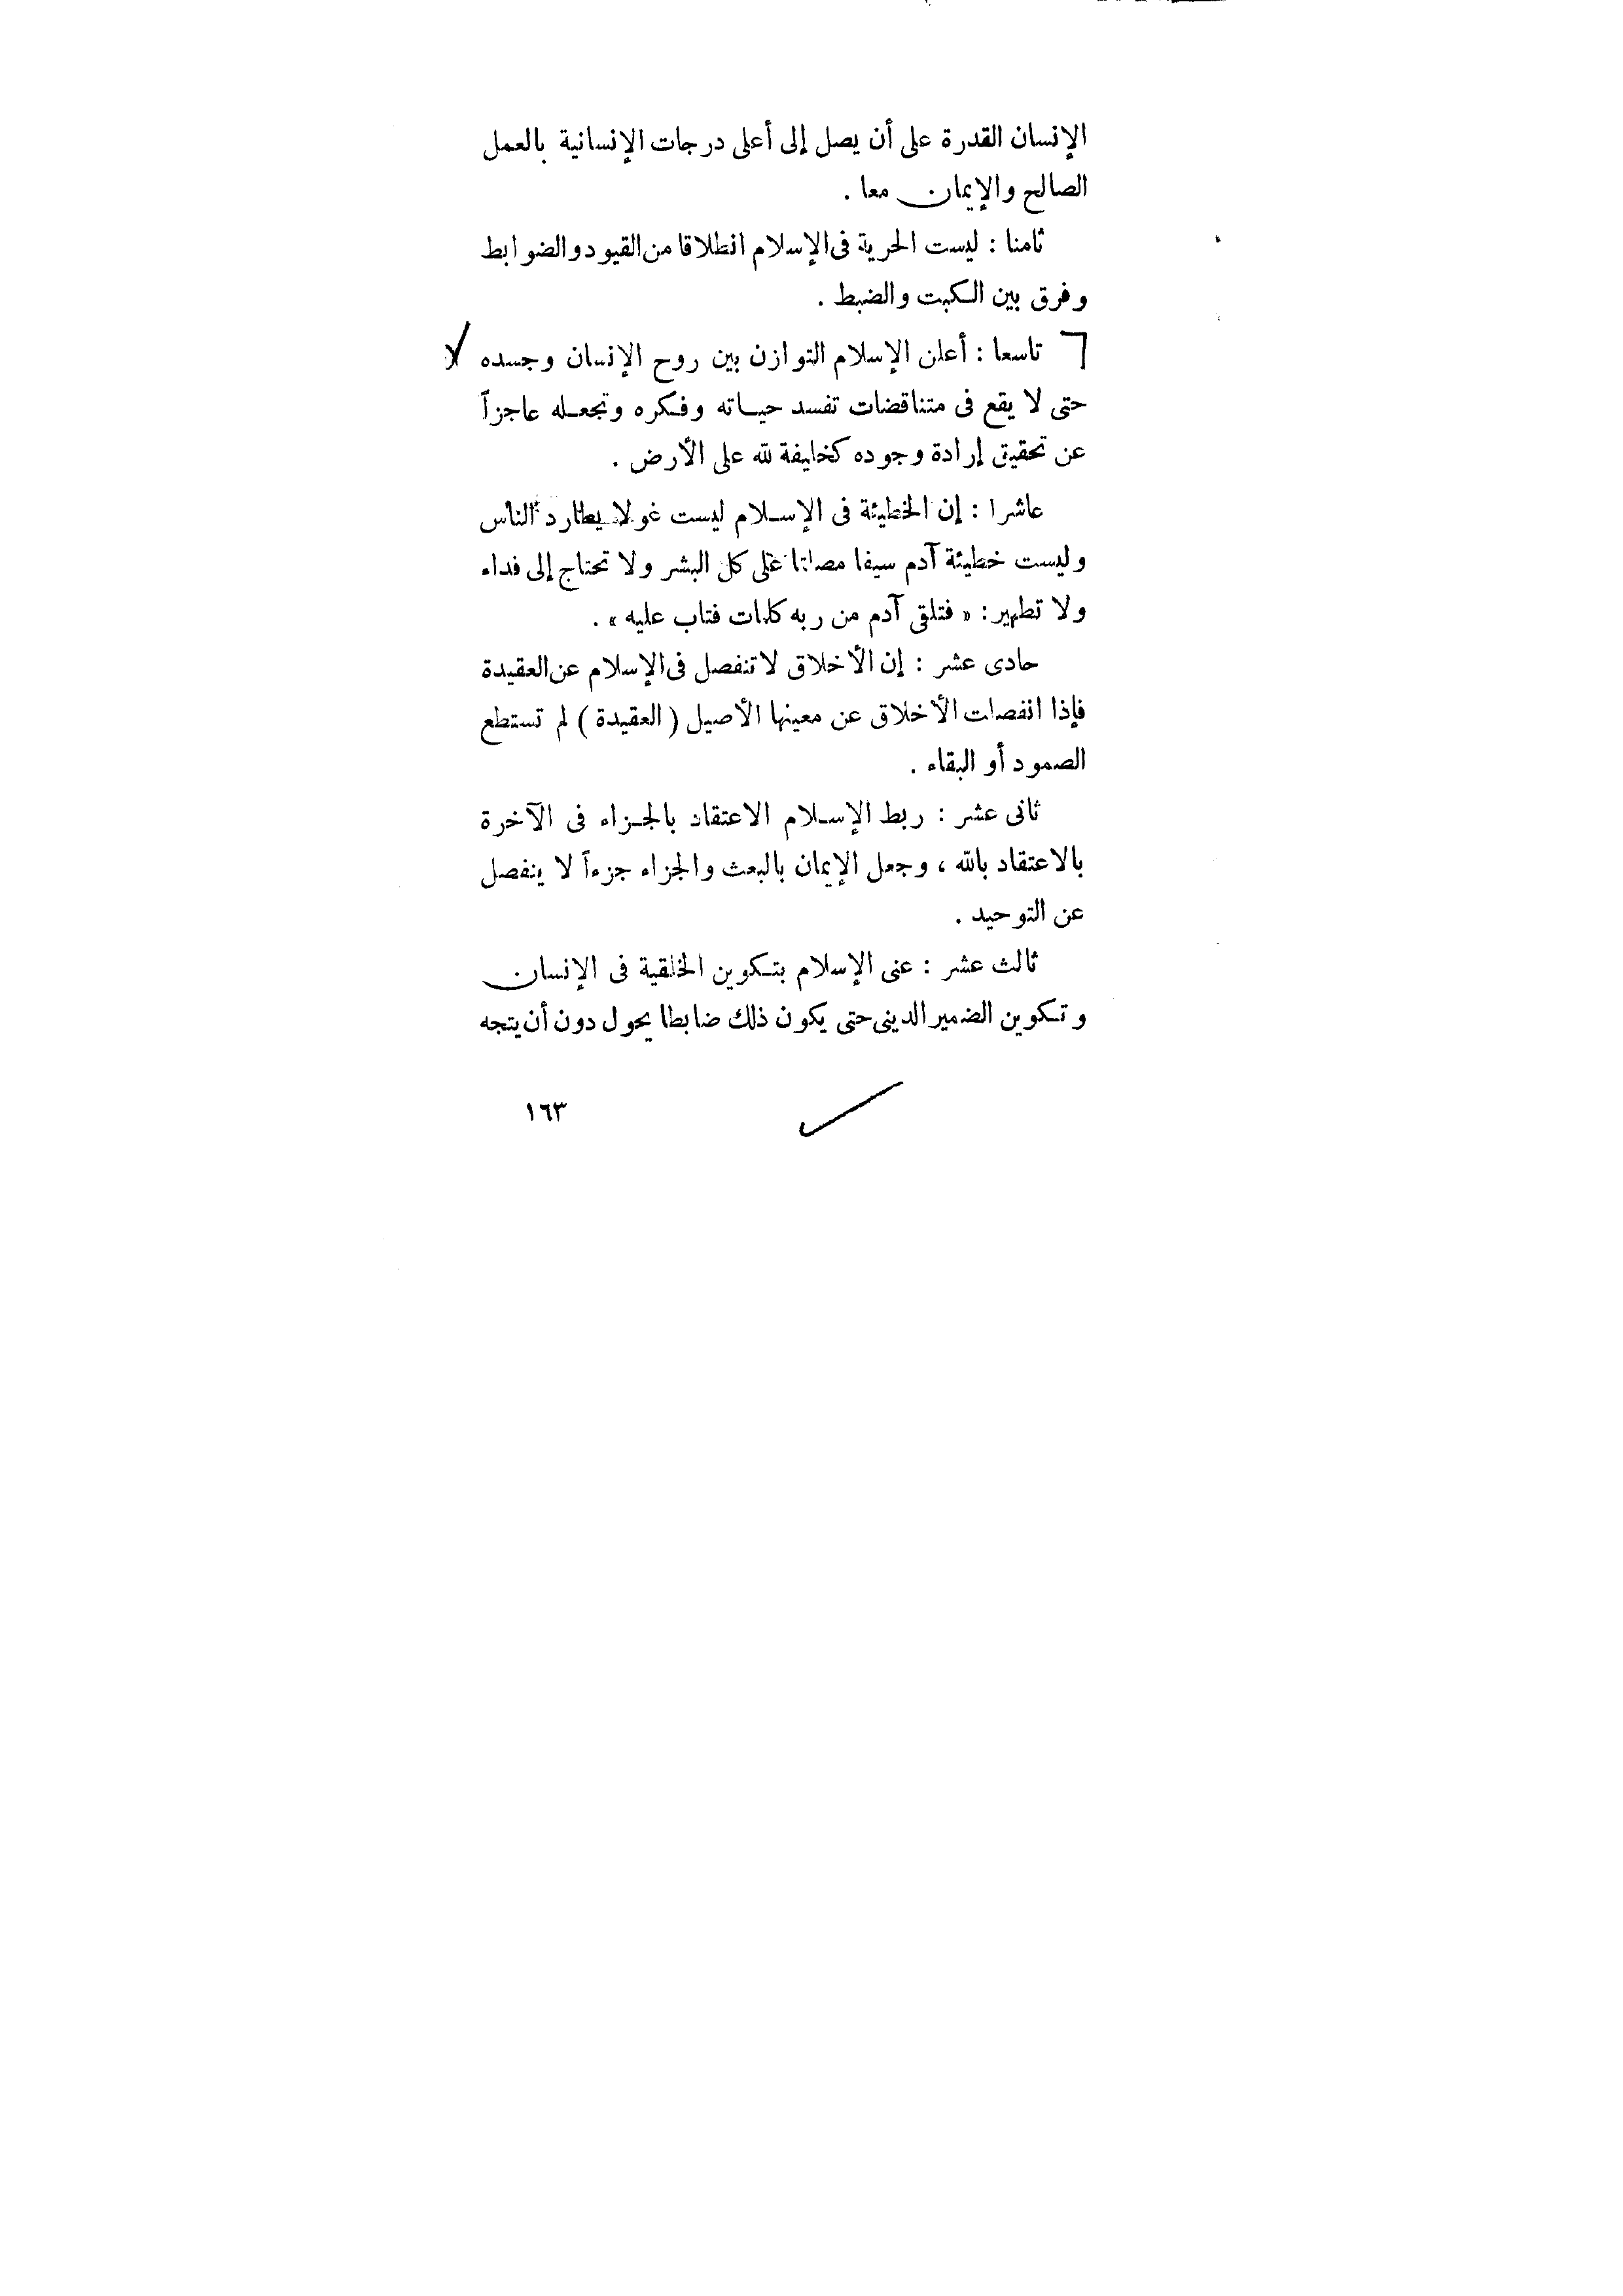 الإنسان القدرة على أن يصل إلى أعلى درجات الإنسانية بالعمل
الصالح والإيمان معا .
ثامنا : ليست الحرية فى الإسلام انطلاقا من القيود والضوابط
وفرق بين الكبت والضبط .
تاسعا : أعلن الإسلام التوازن بين روح الإنسان وجسده
حتى لا يقع فى متناقضات تفسد حياته وفكره وتجعله عاجزاً
عن تحقيق إرادة وجوده كخليفة لله على الأرض .
عاشرا : إن الخطيئة فى الإسلام ليست غولا يطارد الناس
وليست خطيئة آدم سيفا مصلتا على كل البشر ولا تحتاج إلى فداء
ولا تطهير : « فتلقى آدم من ربه كلمات فتاب عليه » .
حادى عشر : إن الأخلاق لا تنفصل فى الإسلام عن العقيدة
فإذا انفصلت الأخلاق عن معينها الأصيل ( العقيدة ) لم تستطع
الصمود أو البقاء .
ثانى عشر : ربط الإسلام الاعتقاد بالجزاء فى الآخرة
بالاعتقاد بالله ، وجعل الإيمان بالبعث والجزاء جزءاً لا ينفصل
عن التوحيد .
ثالث عشر : عنى الإسلام بتكوين الخلقية فى الإنسان
وتكوين الضمير الدينى حتى يكون ذلك ضابطا يحول دون أن يتجه
١٦٣